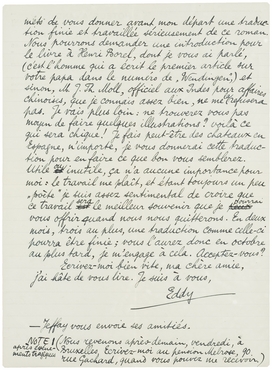 mets de vous donner avant mon départ une traduc-
tion finie et travaillée sérieusement de ce roman.
Nous pourrons demander une introduction pour
le livre à Henri Borel, dont je vous ai parlé,
(c'est l'homme qui a écrit le premier article sur
votre papa dans le numéro de „Wendingen”) et
sinon, M. J. Th. Moll, officiel aux Indes pour affaires
chinoises, que je connais assez bien, ne me refusera
pas. Je vais plus loin: ne trouverez vous pas
moyen de faire quelques illustrations? voilà ce
qui sera chique! Je fais peut-être des châteaux en
Espagne, n'importe, je vous donnerai cette traduc-
tion pour en faire ce que bon vous semblera.
Utile ou inutile, ça n'a aucune importance pour
moi: le travail me plaît, et étant toujours un peu
„poète” je suis assez sentimental de croire que
ce travail sera le meilleur souvenir que je pourrai
vous offrir quand nous nous quitterons. En deux
mois, trois au plus, une traduction comme celle-ci
pourra être finie; vous l'aurez donc en octobre
au plus tard, je m'engage à cela. Acceptez-vous?
Écrivez-moi bien vite, ma chère amie,
j'ai hâte de vous lire. Je suis à vous,
Eddy
— Jeffay vous envoie ses amitiés.
NOTE! (Nous revenons après-demain, vendredi, à
Bruxelles. Écrivez-moi au pension Melrose, 90,
rue Gachard, quand vous pouvez me recevoir.)